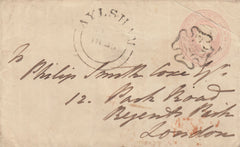 AYLSHAM
To
Philip Smith Coxe Esqr.
12. Park Road
Regents Park
London